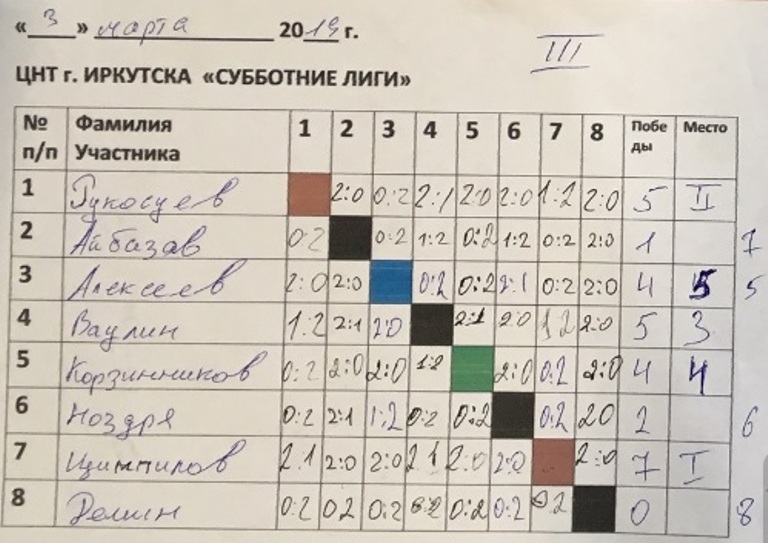 « 3 » марта 2019 г.
III
ЦНТ г. ИРКУТСКА «СУББОТНИЕ ЛИГИ»
№ п/п Фамилия Участника 1 2 3 4 5 6 7 8 Побе ды Место
1 Рукосуев 2:0 0:2 2:1 2:0 2:0 1:2 2:0 5 II
2 Айбазав 0:2 0:2 1:2 0:2 1:2 0:2 2:0 1 7
3 Алексеев 2:0 2:0 0:2 0:2 2:1 0:2 2:0 4 5 5
4 Ваулин 1:2 2:1 2:0 2:1 2:0 1 2 2:0 5 3
5 Корзинников 0:2 2:0 2:0 1:2 2:0 0:2 2:0 4 4
6 Ноздря 0:2 2:1 1:2 0:2 0:2 0:2 2 0 2 6
7 2:1 2:0 2:0 2 1 2:0 2:0 2:0 7 I
8 Демин 0:2 0 2 0:2 0:2 0:2 0:2 0 2 0 8